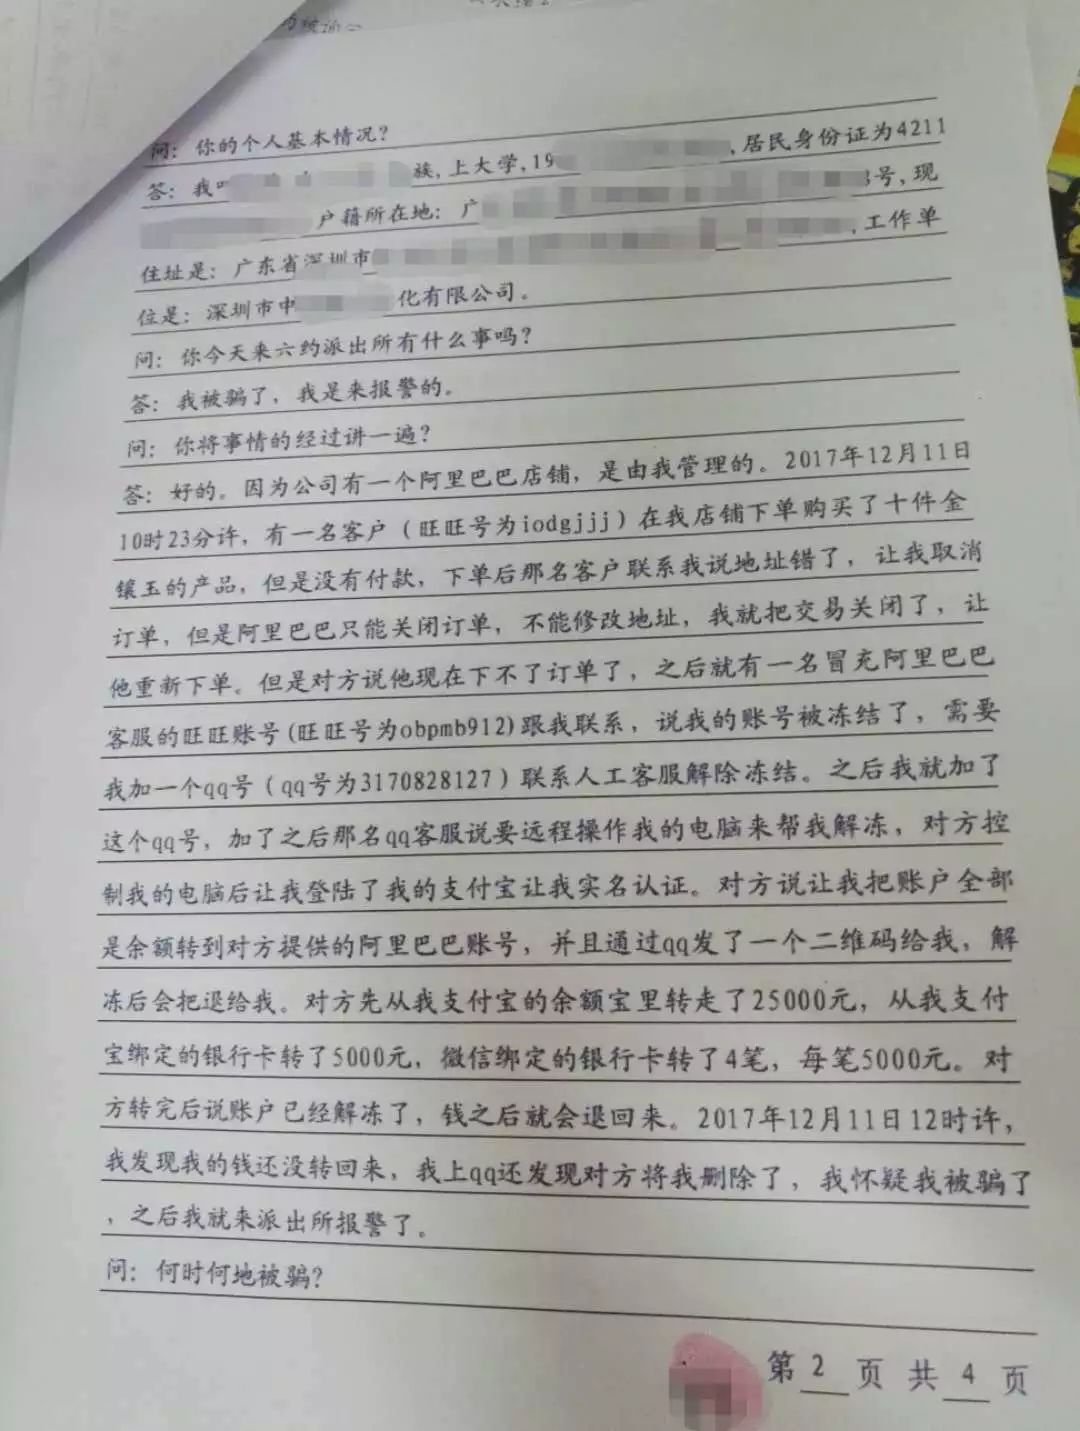 问：你的个人基本情况？
答：我 族，上大学，19 ，居民身份证为4211
户籍所在地：广 号，现
住址是：广东省深圳市 ，工作单
位是：深圳市中 化有限公司。
问：你今天来六约派出所有什么事吗？
答：我被骗了，我是来报警的。
问：你将事情的经过讲一遍？
答：好的。因为公司有一个阿里巴巴店铺，是由我管理的。2017年12月11日
10时23分许，有一名客户（旺旺号为iodgjjj）在我店铺下单购买了十件金
镶玉的产品，但是没有付款，下单后那名客户联系我说地址错了，让我取消
订单，但是阿里巴巴只能关闭订单，不能修改地址，我就把交易关闭了，让
他重新下单。但是对方说他现在下不了订单了，之后就有一名冒充阿里巴巴
客服的旺旺账号(旺旺号为obpmb912)跟我联系，说我的账号被冻结了，需要
我加一个qq号（qq号为3170828127）联系人工客服解除冻结。之后我就加了
这个qq号，加了之后那名qq客服说要远程操作我的电脑来帮我解冻，对方控
制我的电脑后让我登陆了我的支付宝让我实名认证。对方说让我把账户全部
是余额转到对方提供的阿里巴巴账号，并且通过qq发了一个二维码给我，解
冻后会把退给我。对方先从我支付宝的余额宝里转走了25000元，从我支付
宝绑定的银行卡转了5000元，微信绑定的银行卡转了4笔，每笔5000元。对
方转完后说账户已经解冻了，钱之后就会退回来。2017年12月11日12时许，
我发现我的钱还没转回来，我上qq还发现对方将我删除了，我怀疑我被骗了
，之后我就来派出所报警了。
问：何时何地被骗？
第2页共4页